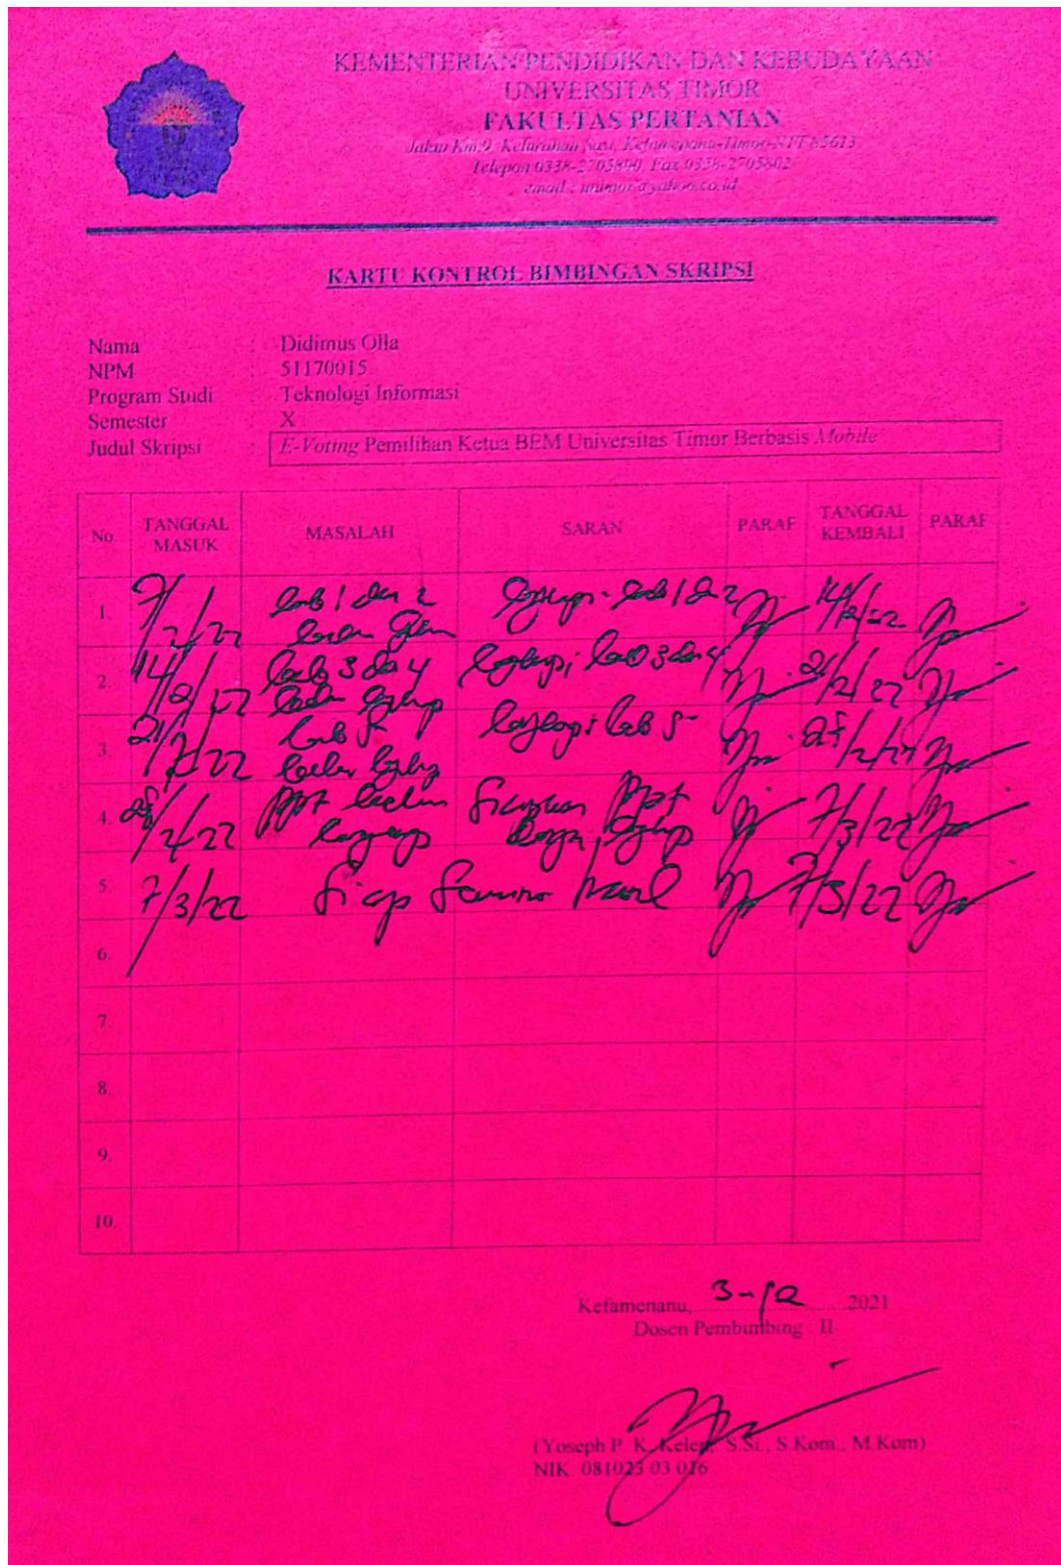 KEMENTERIAN PENDIDIKAN DAN KEBUDAYAAN
UNIVERSITAS TIMOR
FAKULTAS PERTANIAN
Jalan Km.9, Kelurahan Sasi, Kefamenanu-Timor-NTT 85613
Telepon 0338-2705800, Fax 0338-2705802
email : unimor@yahoo.co.id
KARTU KONTROL BIMBINGAN SKRIPSI
Nama : Didimus Olla
NPM : 51170015
Program Studi : Teknologi Informasi
Semester : X
Judul Skripsi : E-Voting Pemilihan Ketua BEM Universitas Timor Berbasis Mobile
No. TANGGAL MASUK MASALAH SARAN PARAF TANGGAL KEMBALI PARAF
1. 7/2/22 bab 1 dan 2 bab 1 da 2 14/2/22
2. 14/2/22 bab 3 da 4 bab 3 da 4 21/2/22
3. 21/2/22 bab 5 bab 5
4. /2/22 ppt ppt 7/3/22
5. 7/3/22 Siap Seminar Hasil 7/3/22
6.
7.
8.
9.
10.
Kefamenanu, 3-12 2021
Dosen Pembimbing II
(Yoseph P. K. Kelen, S.Si., S.Kom., M.Kom)
NIK. 081023 03 016